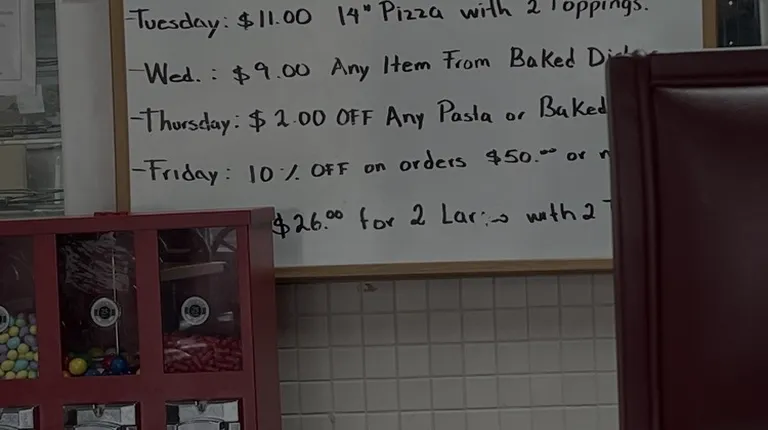 -Tuesday: $11.00 14" Pizza with 2 Toppings.
-Wed.: $9.00 Any Item From Baked
-Thursday: $2.00 OFF Any Pasta or Baked
-Friday: 10% OFF on orders $50.00 or
$26.00 for 2 with 2